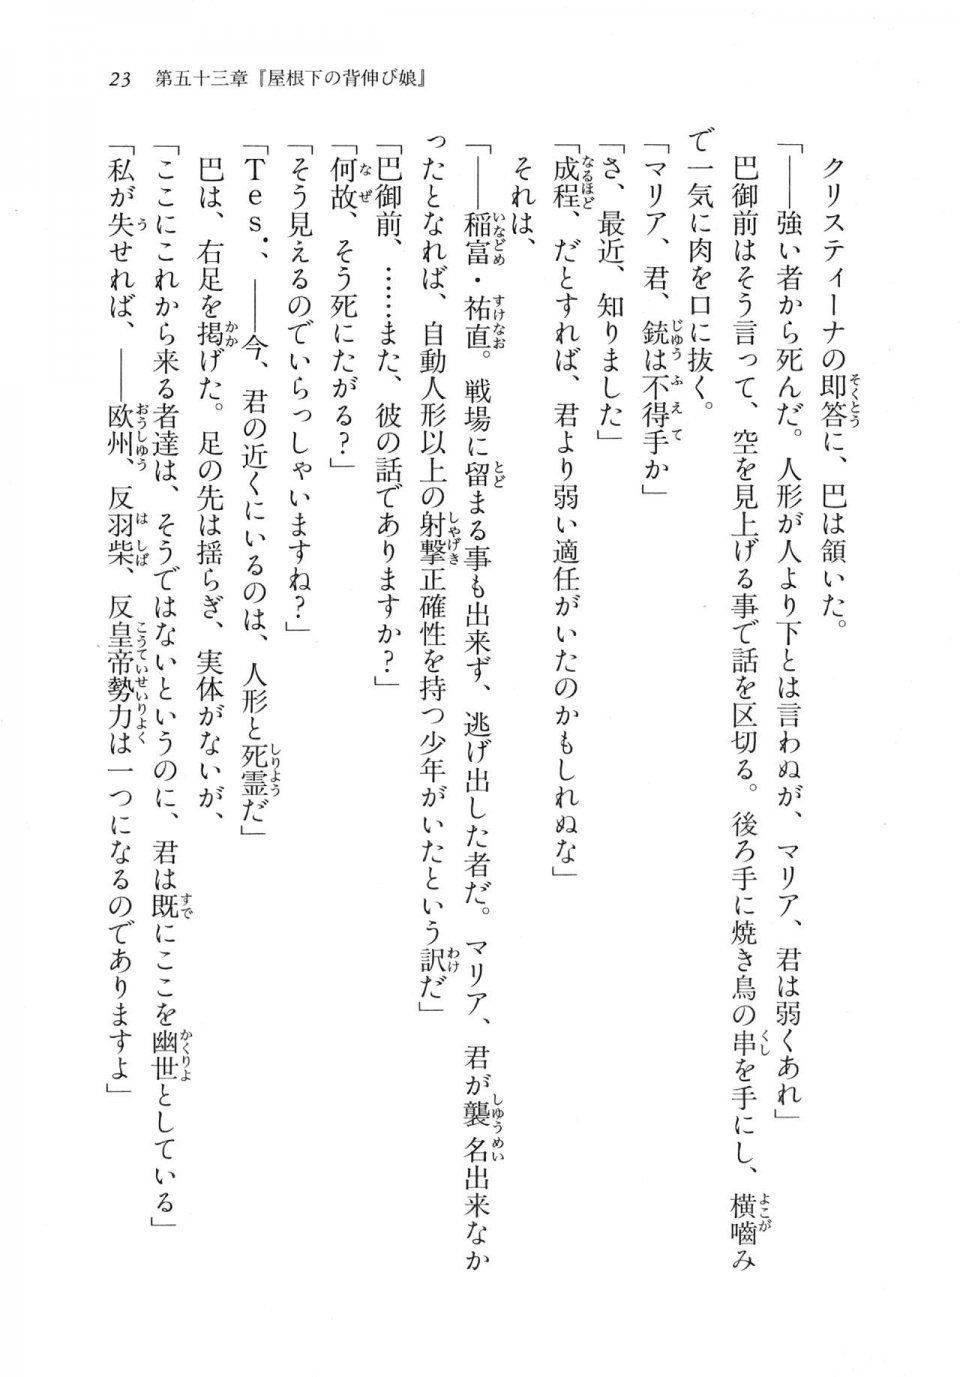 23 第五十三章『屋根下の背伸び娘』
クリスティーナの即答に、巴は頷いた。
「――強い者から死んだ。人形が人より下とは言わぬが、マリア、君は弱くあれ」
巴御前はそう言って、空を見上げる事で話を区切る。後ろ手に焼き鳥の串を手にし、横嚙み
で一気に肉を口に抜く。
「マリア、君、銃は不得手か」
「さ、最近、知りました」
「成程、だとすれば、君より弱い適任がいたのかもしれぬな」
それは、
「――稲富・祐直。戦場に留まる事も出来ず、逃げ出した者だ。マリア、君が襲名出来なか
ったとなれば、自動人形以上の射撃正確性を持つ少年がいたという訳だ」
「巴御前、……また、彼の話でありますか？」
「何故、そう死にたがる？」
「そう見えるのでいらっしゃいますね？」
「Ｔｅｓ．、――今、君の近くにいるのは、人形と死霊だ」
巴は、右足を掲げた。足の先は揺らぎ、実体がないが、
「ここにこれから来る者達は、そうではないというのに、君は既にここを幽世としている」
「私が失せれば、――欧州、反羽柴、反皇帝勢力は一つになるのでありますよ」